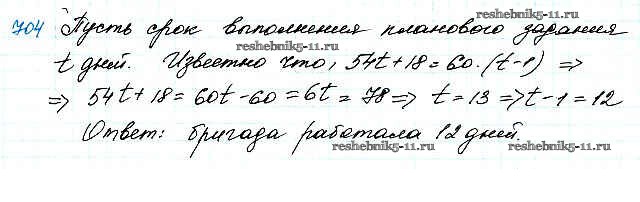 704 Пусть срок выполнения планового задания
reshebnik5-11.ru
t дней. Известно что, 54t+18=60·(t-1) ⇒
reshebnik5-11.ru
⇒ 54t+18=60t-60=6t=78⇒ t=13⇒t-1=12
Ответ: бригада работала 12 дней.
reshebnik5-11.ru
reshebnik5-11.ru